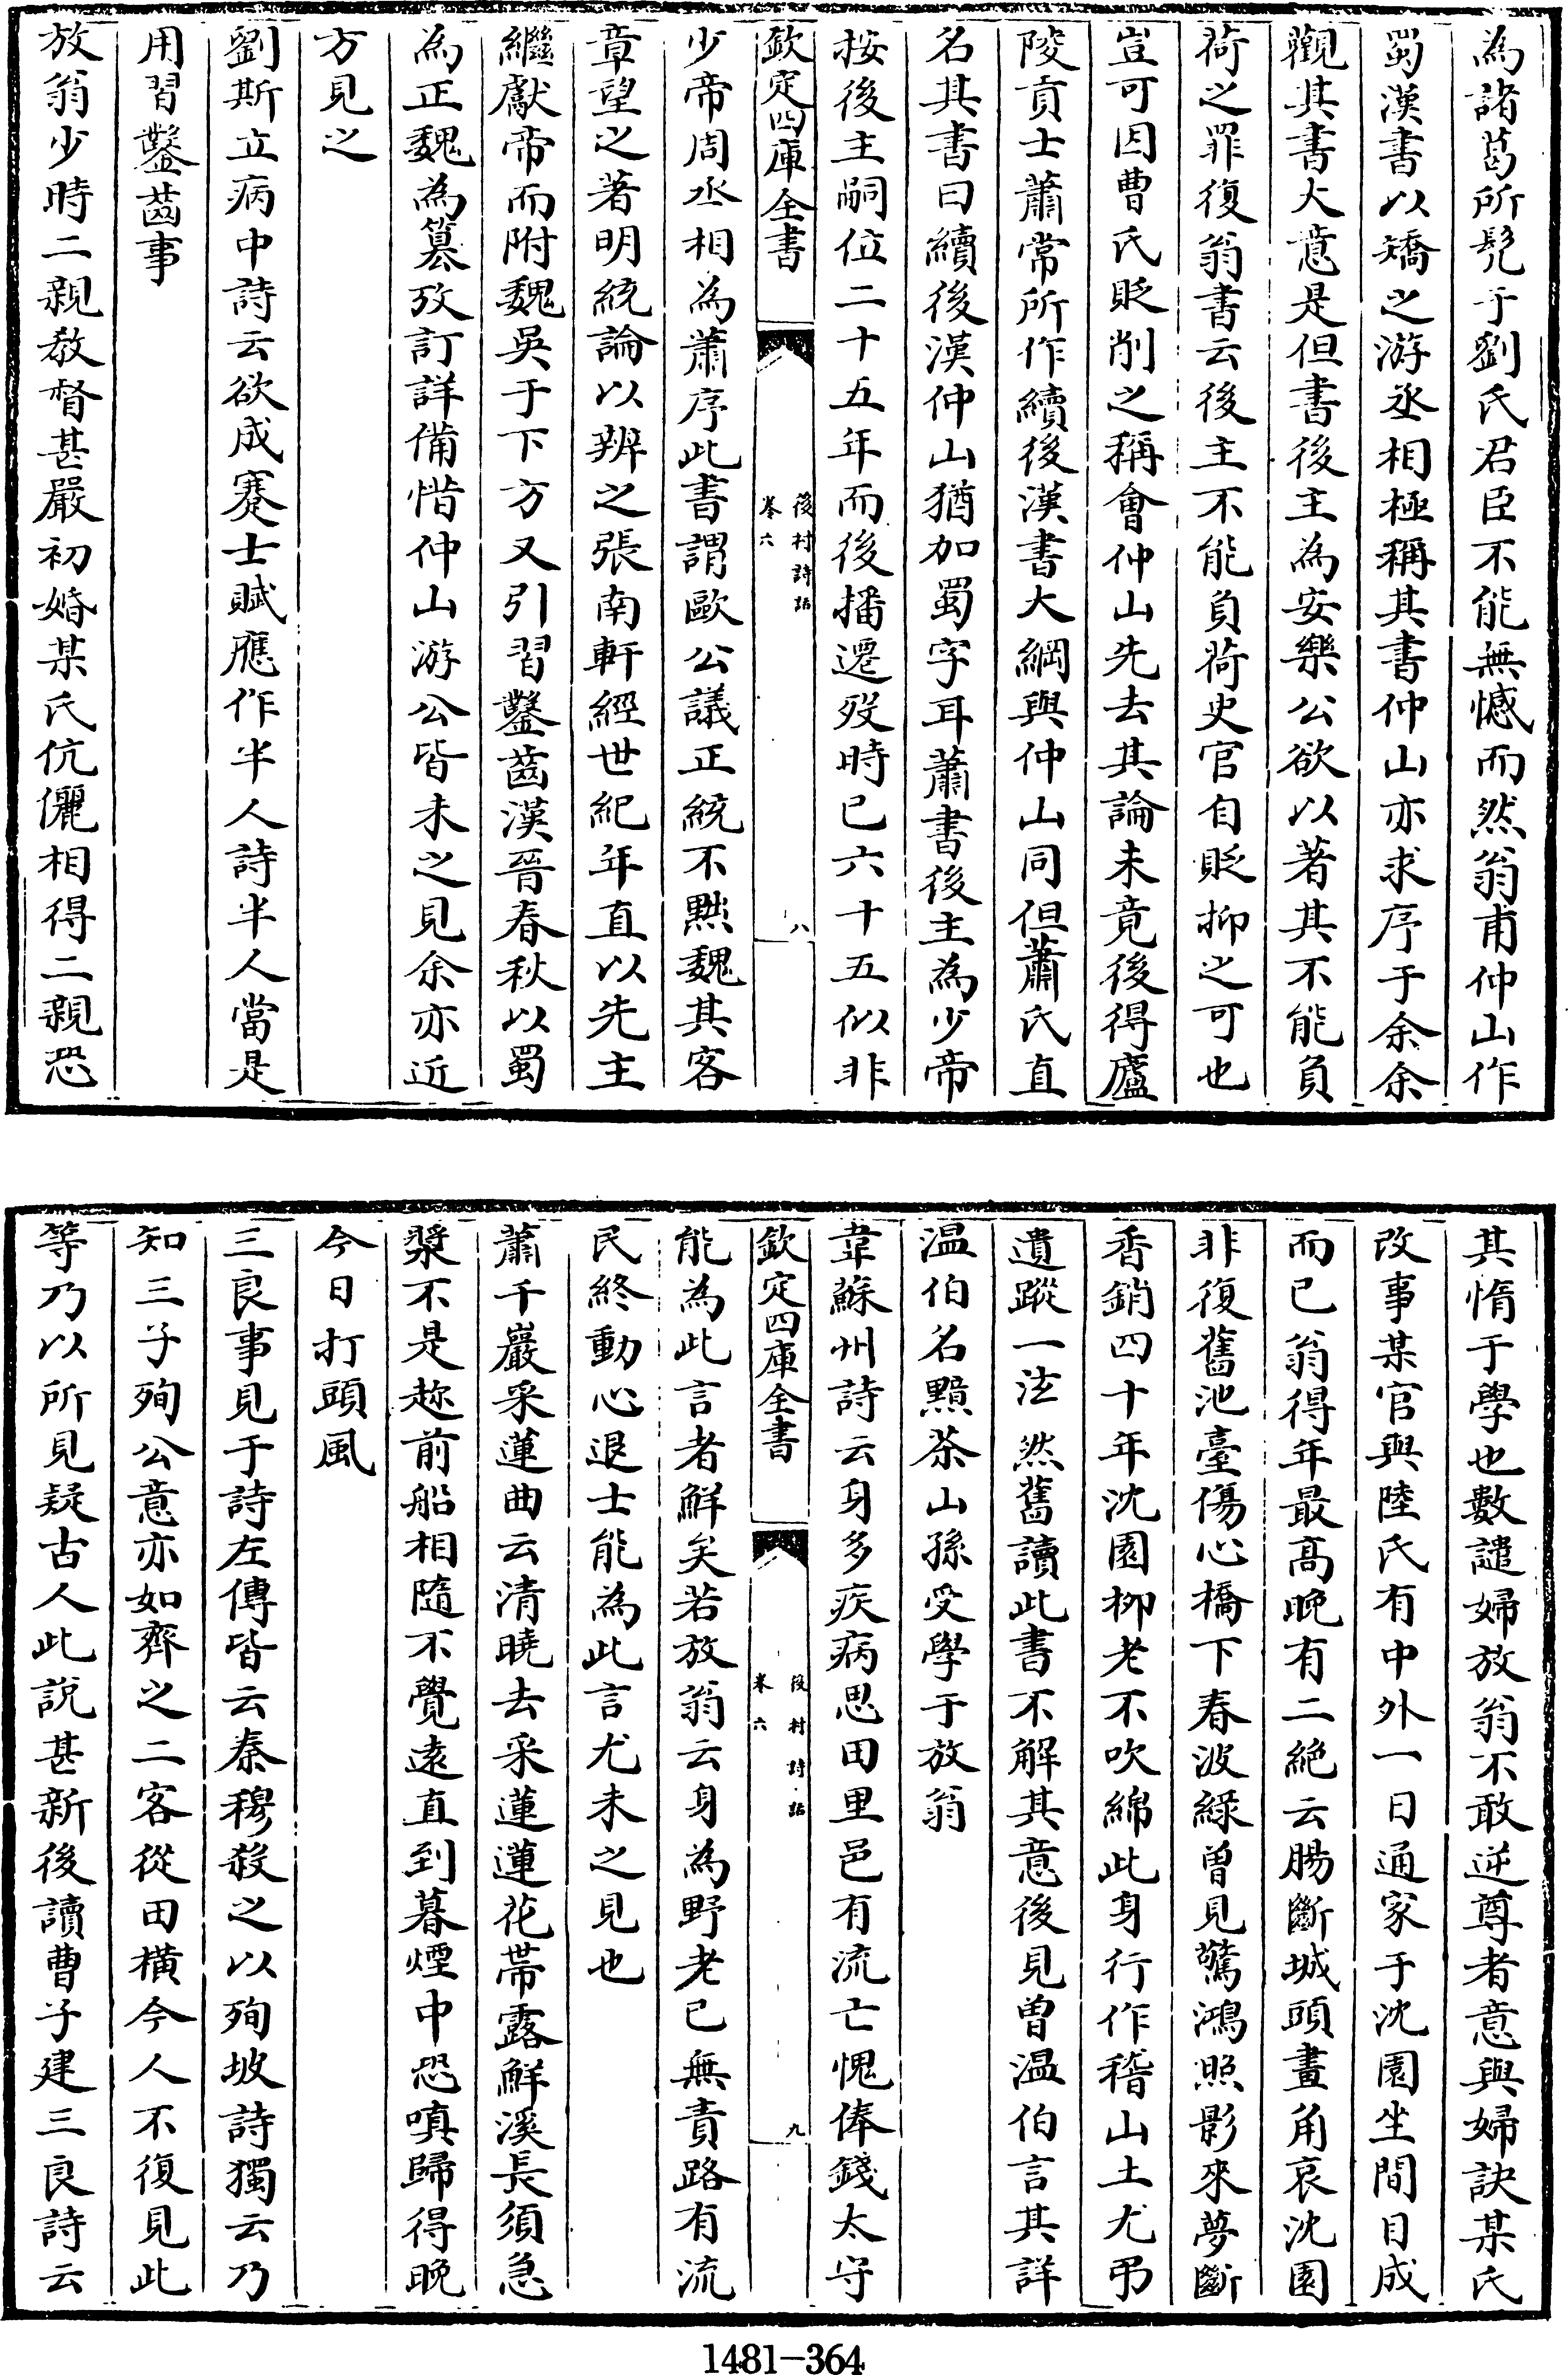 為諸葛所髡于劉氏君臣不能無憾而然翁甫仲山作
蜀漢書以矯之游丞相極稱其書仲山亦求序于余余
觀其書大意是但書後主為安樂公欲以著其不能負
荷之罪復翁書云後主不能負荷史官自貶抑之可也
豈可因曹氏貶削之稱會仲山先去其論未竟後得廬
陵貢士蕭常所作續後漢書大綱與仲山同但蕭氏直
名其書曰續後漢仲山猶加蜀字耳蕭書後主為少帝
按後主嗣位二十五年而後播遷殁時已六十五似非
欽定四庫全書
後村詩話
卷六
八
少帝周丞相為蕭序此書謂歐公議正統不黜魏其客
章望之著明統論以辨之張南軒經世紀年直以先主
繼獻帝而附魏吳于下方又引習鑿齒漢晉春秋以蜀
為正魏為篡攷訂詳備惜仲山游公皆未之見余亦近
方見之
劉斯立病中詩云欲成蹇士賦應作半人詩半人當是
用習鑿齒事
放翁少時二親教督甚嚴初婚某氏伉儷相得二親恐
其惰于學也數譴婦放翁不敢逆尊者意與婦訣某氏
改事某官與陸氏有中外一日通家于沈園坐間目成
而已翁得年最高晚有二絕云腸斷城頭畫角哀沈園
非復舊池臺傷心橋下春波綠曾見驚鴻照影來夢斷
香銷四十年沈園柳老不吹綿此身行作稽山土尤弔
遺蹤一泫然舊讀此書不解其意後見曾温伯言其詳
温伯名黯茶山孫受學于放翁
韋蘇州詩云身多疾病思田里邑有流亡愧俸錢太守
欽定四庫全書
後村詩話
卷六
九
能為此言者鮮矣若放翁云身為野老已無責路有流
民終動心退士能為此言尤未之見也
蕭千巖采蓮曲云清曉去采蓮蓮花帶露鮮溪長須急
槳不是趂前船相隨不覺遠直到暮煙中恐嗔歸得晚
今日打頭風
三良事見于詩左傳皆云秦穆殺之以殉坡詩獨云乃
知三子殉公意亦如齊之二客從田橫今人不復見此
等乃以所見疑古人此說甚新後讀曹子建三良詩云
1481-364